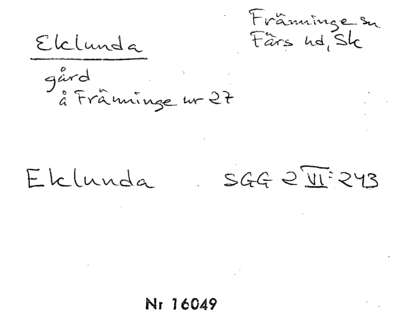 Eklunda
Fränninge sn
Färs hd, Sk
gård
å Fränninge nr 27
Eklunda SGG 2 VI: 243
Nr 16049